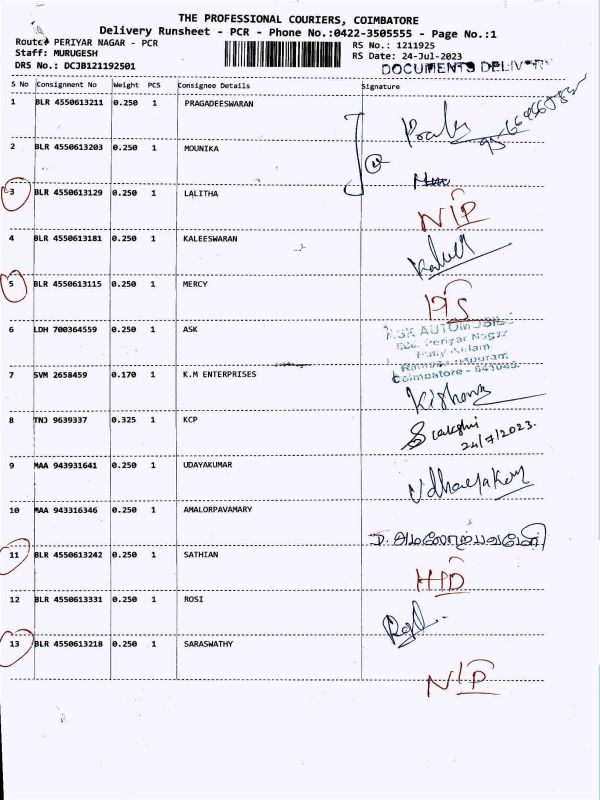 THE PROFESSIONAL COURIERS, COIMBATORE
Delivery Runsheet - PCR - Phone No.:0422-3505555 - Page No.:1
Route: PERIYAR NAGAR - PCR
RS No.: 1211925
Staff: MURUGESH
RS Date: 24-Jul-2023
DRS No.: DCJB121192501
DOCUMENTS
S No Consignment No Weight PCS Consignee Details Signature
1 BLR 4550613211 0.250 1 PRAGADEESWARAN
2 BLR 4550613203 0.250 1 MOUNIKA
3 BLR 4550613129 0.250 1 LALITHA
NIP
4 BLR 4550613181 0.250 1 KALEESWARAN
5 BLR 4550613115 0.250 1 MERCY
6 LDH 700364559 0.250 1 ASK
Periyar Nagar
Coimbatore - 641045
7 SVM 2658459 0.170 1 K.M ENTERPRISES
Kishore
8 TNJ 9639337 0.325 1 KCP
24/7/2023.
9 MAA 943931641 0.250 1 UDAYAKUMAR
10 MAA 943316346 0.250 1 AMALORPAVAMARY
11 BLR 4550613242 0.250 1 SATHIAN
HPD
12 BLR 4550613331 0.250 1 ROSI
13 BLR 4550613218 0.250 1 SARASWATHY
NIP